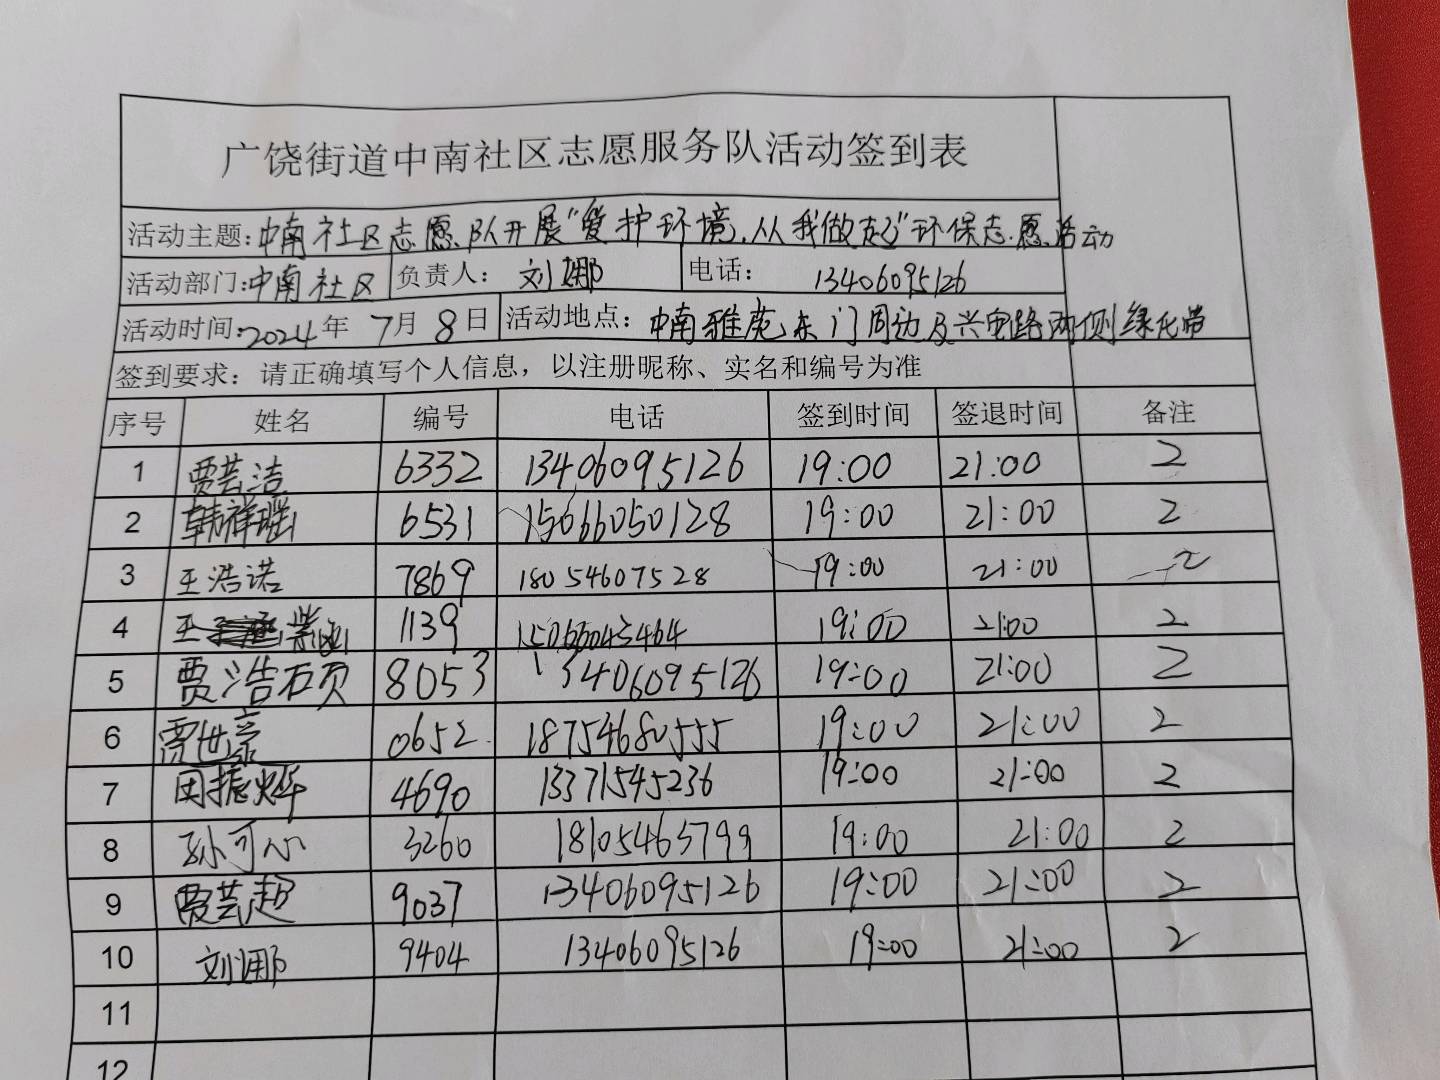 广饶街道中南社区志愿服务队活动签到表
活动主题:中南社区志愿队开展“爱护环境,从我做起”环保志愿活动
活动部门:中南社区 负责人: 刘娜 电话: 13406095126
活动时间:2024年7月8日 活动地点: 中南雅苑东门周边及兴电路两侧绿化带
签到要求: 请正确填写个人信息，以注册昵称、实名和编号为准
序号 姓名 编号 电话 签到时间 签退时间 备注
1 贾芸洁 6332 13406095126 19:00 21:00 2
2 韩祥瑶 6531 15066050128 19:00 21:00 2
3 王浩诺 7869 18054607528 19:00 21:00 2
4 王紫涵 1139 15066043464 19:00 21:00 2
5 贾浩硕 8053 13406095126 19:00 21:00 2
6 贾世豪 0652 18754680555 19:00 21:00 2
7 田振烨 4690 13371545236 19:00 21:00 2
8 孙可心 3260 18105465799 19:00 21:00 2
9 贾芸超 9037 13406095126 19:00 21:00 2
10 刘娜 9404 13406095126 19:00 21:00 2
11
12